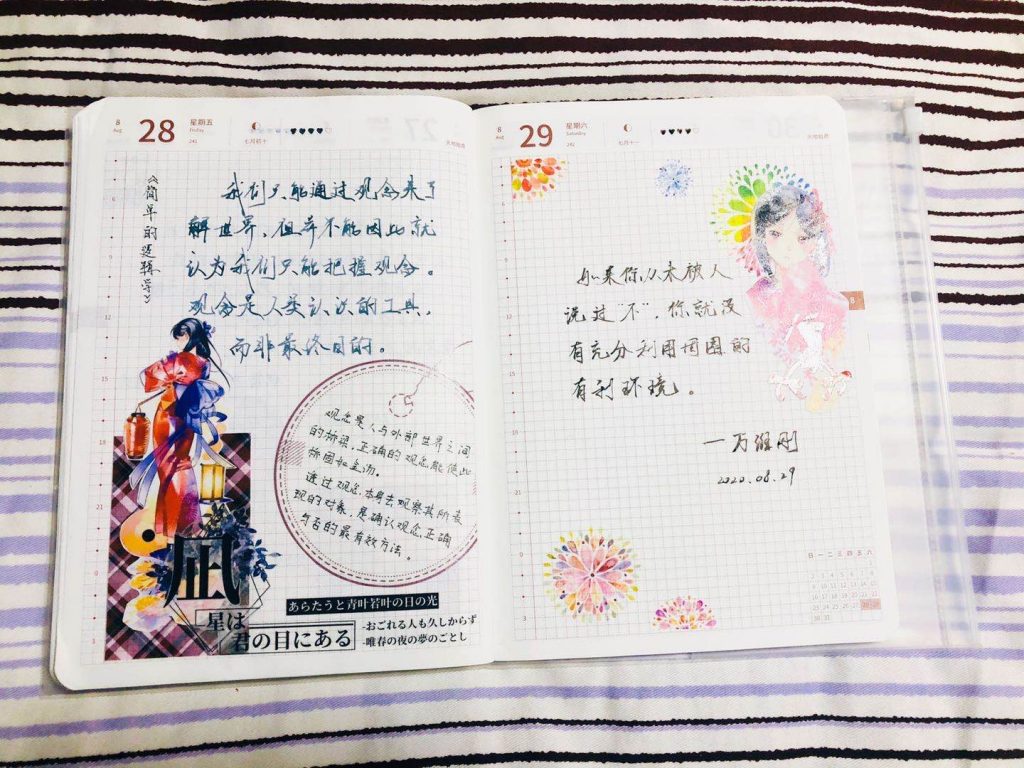 8
Aug
28
星期五
Friday
241
七月初十
《简单的逻辑学》
我们只能通过观念来了
解世界，但并不能因此就
认为我们只能把握观念。
观念是人类认识的工具，
而非最终目的。
观念是人与外部世界之间
的桥梁，正确的观念能使此
桥固如金汤。
透过观念本身去观察其所表
现的对象，是确认观念正确
与否的最有效方法。
凪
星は
君の目にある
あらたうと青叶若叶の日の光
-おごれる人も久しからず
-唯春の夜の夢のごとし
8
Aug
29
星期六
Saturday
242
七月十一
如果你从未被人
说过“不”，你就没
有充分利用周围的
有利环境。
一万维刚
2020.08.29
8
日一二三四五六